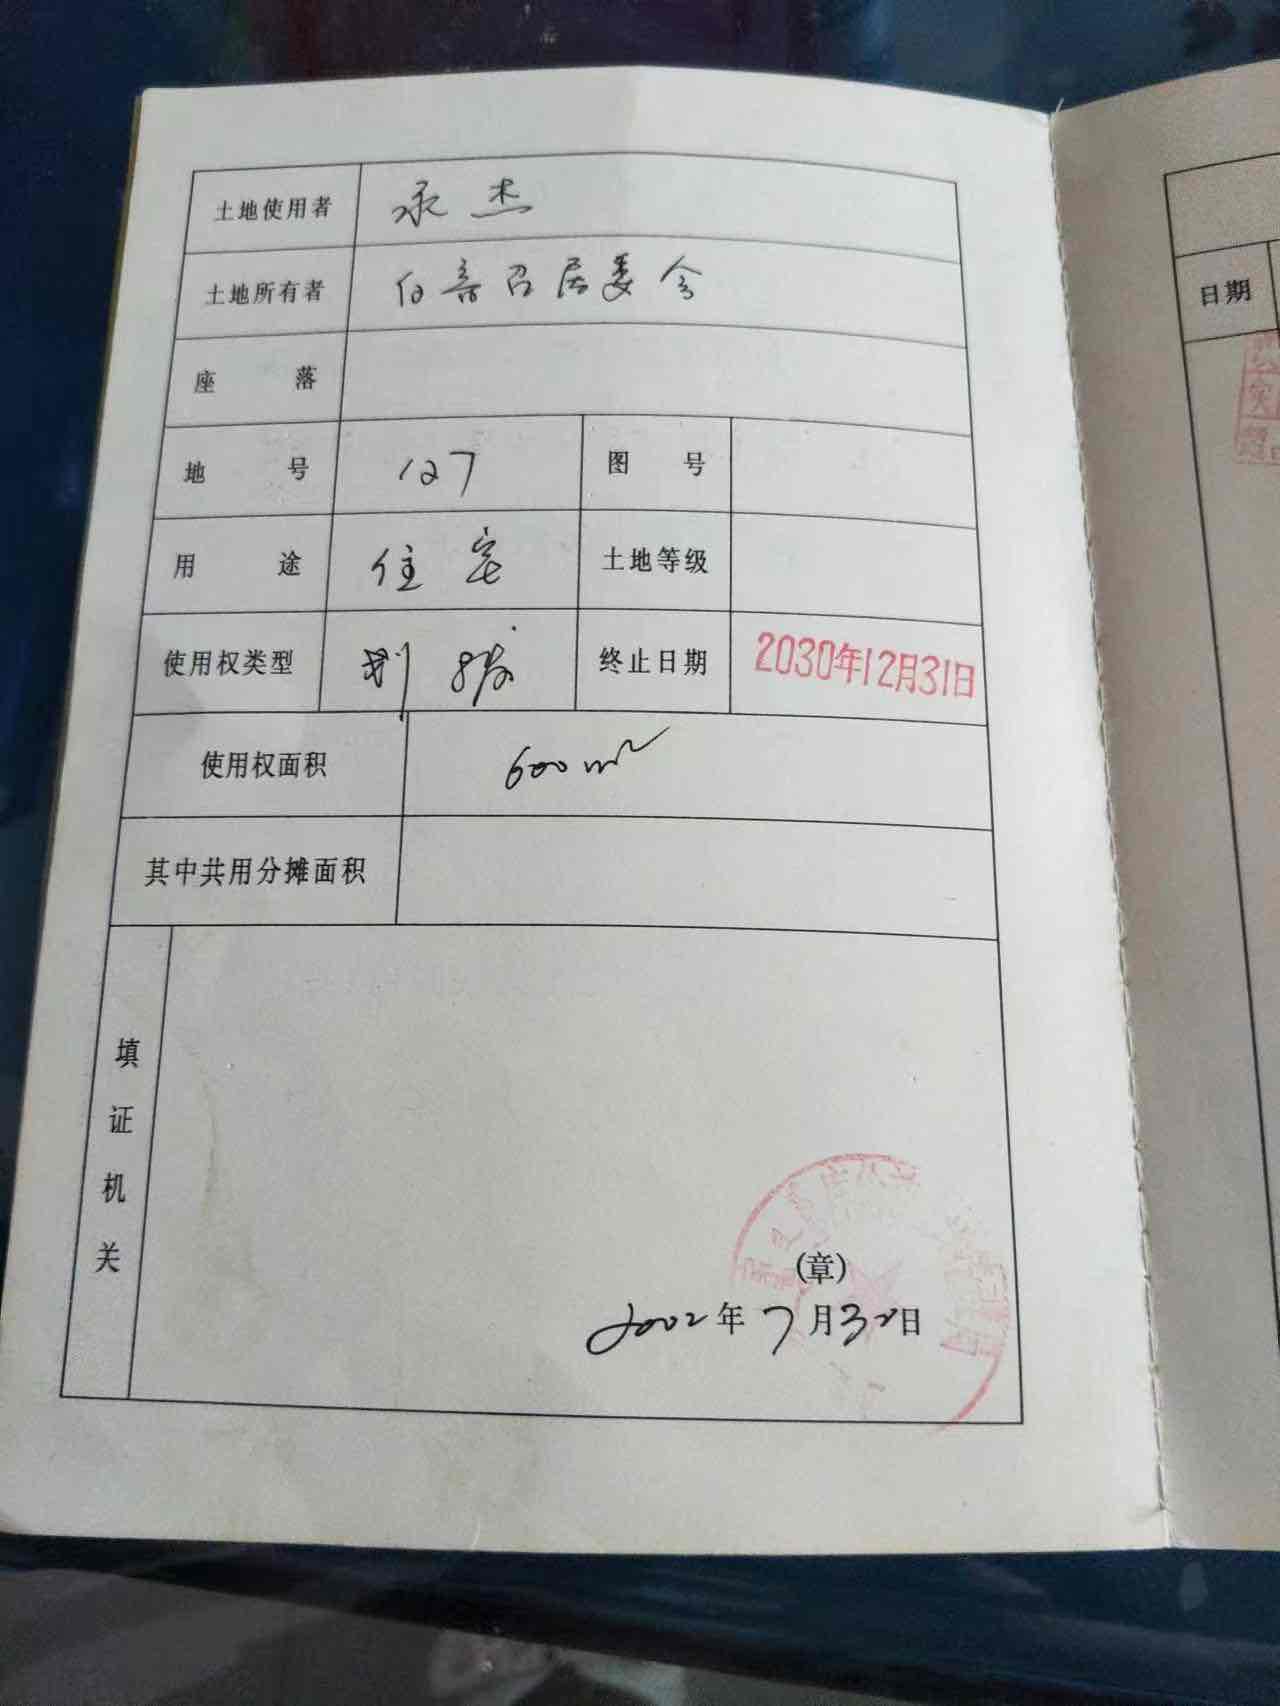 土地使用者 永杰
土地所有者 伯音召居委会
座落
地号 127 图号
用途 住宅 土地等级
使用权类型 划拨 终止日期 2030年12月31日
使用权面积 600m²
其中共用分摊面积
填证机关
(章)
2002年7月30日
日期